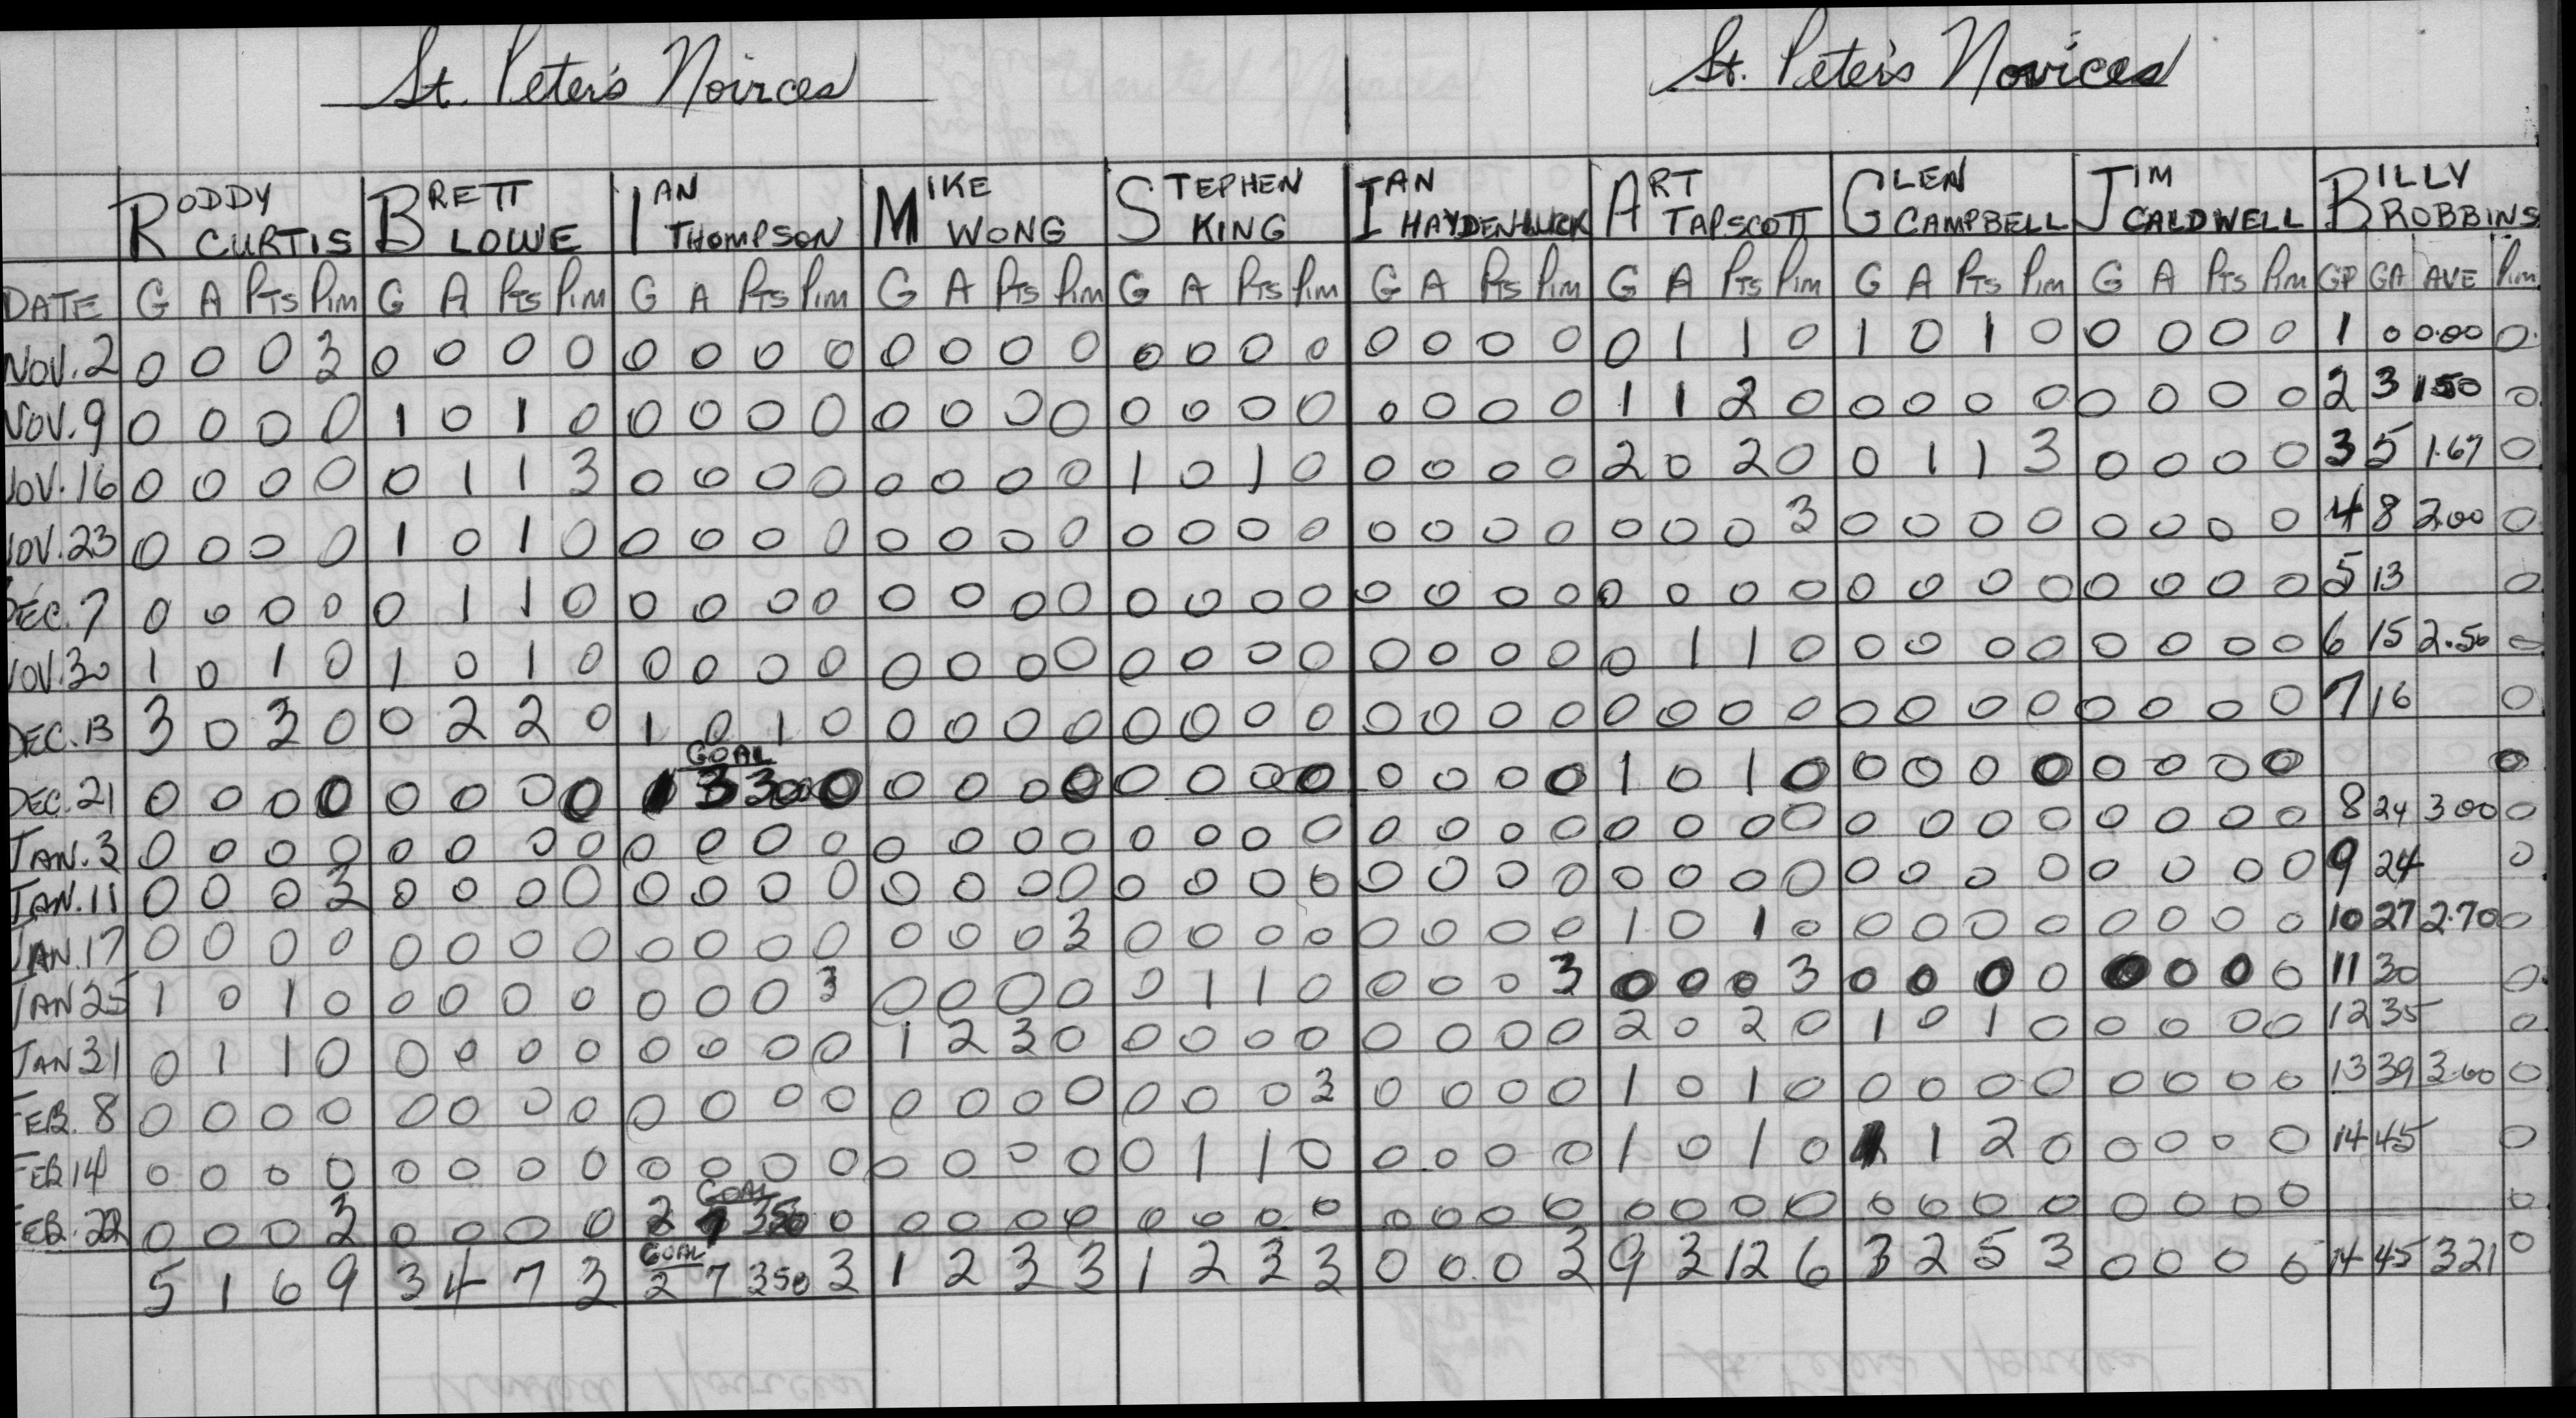 St. Peter's Noirces St. Peter's Novices
RODDY CURTIS BRETT LOWE IAN THOMPSON MIKE WONG STEPHEN KING IAN HAYDEN-LUCK ART TAPSCOTT GLEN CAMPBELL JIM CALDWELL BILLY ROBBINS
DATE G A PTS PIM G A PTS PIM G A PTS PIM G A PTS PIM G A PTS PIM G A PTS PIM G A PTS PIM G A PTS PIM G A PTS PIM GP GA AVE PIM
NOV. 2 0 0 0 3 0 0 0 0 0 0 0 0 0 0 0 0 0 0 0 0 0 0 0 0 0 1 1 0 1 0 1 0 0 0 0 0 1 0 0.00 0
NOV. 9 0 0 0 0 1 0 1 0 0 0 0 0 0 0 0 0 0 0 0 0 0 0 0 0 1 1 2 0 0 0 0 0 0 0 0 0 2 3 1.50 0
NOV. 16 0 0 0 0 0 1 1 3 0 0 0 0 0 0 0 0 1 0 1 0 0 0 0 0 2 0 2 0 0 1 1 3 0 0 0 0 3 5 1.67 0
NOV. 23 0 0 0 0 1 0 1 0 0 0 0 0 0 0 0 0 0 0 0 0 0 0 0 0 0 0 0 3 0 0 0 0 0 0 0 0 4 8 2.00 0
DEC. 7 0 0 0 0 0 1 1 0 0 0 0 0 0 0 0 0 0 0 0 0 0 0 0 0 0 0 0 0 0 0 0 0 0 0 0 0 5 13 0
NOV. 30 1 0 1 0 1 0 1 0 0 0 0 0 0 0 0 0 0 0 0 0 0 0 0 0 0 1 1 0 0 0 0 0 0 0 0 0 6 15 2.50 0
DEC. 13 3 0 3 0 0 2 2 0 1 0 1 0 0 0 0 0 0 0 0 0 0 0 0 0 0 0 0 0 0 0 0 0 0 0 0 0 7 16 0
GOAL
DEC. 21 0 0 0 0 0 0 0 0 1 3 300 0 0 0 0 0 0 0 0 0 0 0 0 0 1 0 1 0 0 0 0 0 0 0 0 0 0
JAN. 3 0 0 0 0 0 0 0 0 0 0 0 0 0 0 0 0 0 0 0 0 0 0 0 0 0 0 0 0 0 0 0 0 0 0 0 0 8 24 3 00 0
JAN. 11 0 0 0 3 0 0 0 0 0 0 0 0 0 0 0 0 0 0 0 0 0 0 0 0 0 0 0 0 0 0 0 0 0 0 0 0 9 24 0
JAN. 17 0 0 0 0 0 0 0 0 0 0 0 0 0 0 0 3 0 0 0 0 0 0 0 0 1 0 1 0 0 0 0 0 0 0 0 0 10 27 2.70 0
JAN 25 1 0 1 0 0 0 0 0 0 0 0 3 0 0 0 0 0 1 1 0 0 0 0 3 0 0 0 3 0 0 0 0 0 0 0 0 11 30 0
JAN 31 0 1 1 0 0 0 0 0 0 0 0 0 1 2 3 0 0 0 0 0 0 0 0 0 2 0 2 0 1 0 1 0 0 0 0 0 12 35 0
FEB. 8 0 0 0 0 0 0 0 0 0 0 0 0 0 0 0 0 0 0 0 3 0 0 0 0 1 0 1 0 0 0 0 0 0 0 0 0 13 39 3.00 0
FEB 14 0 0 0 0 0 0 0 0 0 0 0 0 0 0 0 0 0 1 1 0 0 0 0 0 1 0 1 0 1 1 2 0 0 0 0 0 14 45 0
GOAL
FEB. 22 0 0 0 3 0 0 0 0 2 7 350 0 0 0 0 0 0 0 0 0 0 0 0 0 0 0 0 0 0 0 0 0 0 0 0 0 0
GOAL
5 1 6 9 3 4 7 3 2 7 350 3 1 2 3 3 1 2 3 3 0 0 0 3 9 3 12 6 3 2 5 3 0 0 0 0 14 45 3 21 0